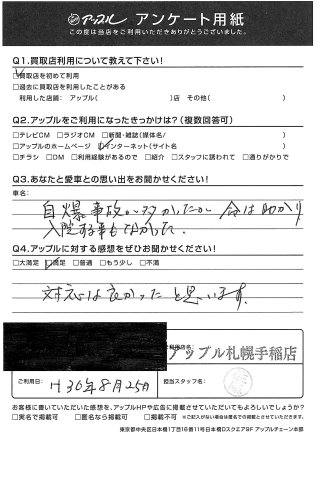 アップル アンケート用紙
この度は当店をご利用いただきありがとうございました。
Q1.買取店利用について教えて下さい!
□買取店を初めて利用
□過去に買取店を利用したことがある
利用した店舗: アップル( )店 その他( )
Q2.アップルをご利用になったきっかけは?(複数回答可)
□テレビCM □ラジオCM □新聞・雑誌(媒体名/ )
□アップルのホームページ □インターネット(サイト名 )
□チラシ □DM □利用経験があるので □紹介 □スタッフに誘われて □通りがかりで
Q3.あなたと愛車との思い出をお聞かせください!
車名:
自爆事故が多かったが 命は助かり
入院する事もなかった.
Q4.アップルに対する感想をぜひお聞かせください!
□大満足 □満足 □普通 □もう少し □不満
対応は良かったと思います.
ご利用店名:
アップル札幌手稲店
ご利用日: H30年8月25日
担当スタッフ名:
お客様に書いていただいた感想を、アップルHPや広告に掲載させていただいてもよろしいでしょうか?
□実名で掲載可 □匿名なら掲載可 □掲載不可 ※ご記入がない場合は匿名での掲載とさせていただきます。
東京都中央区日本橋1丁目16番11号日本橋Dスクエア9F アップルチェーン本部